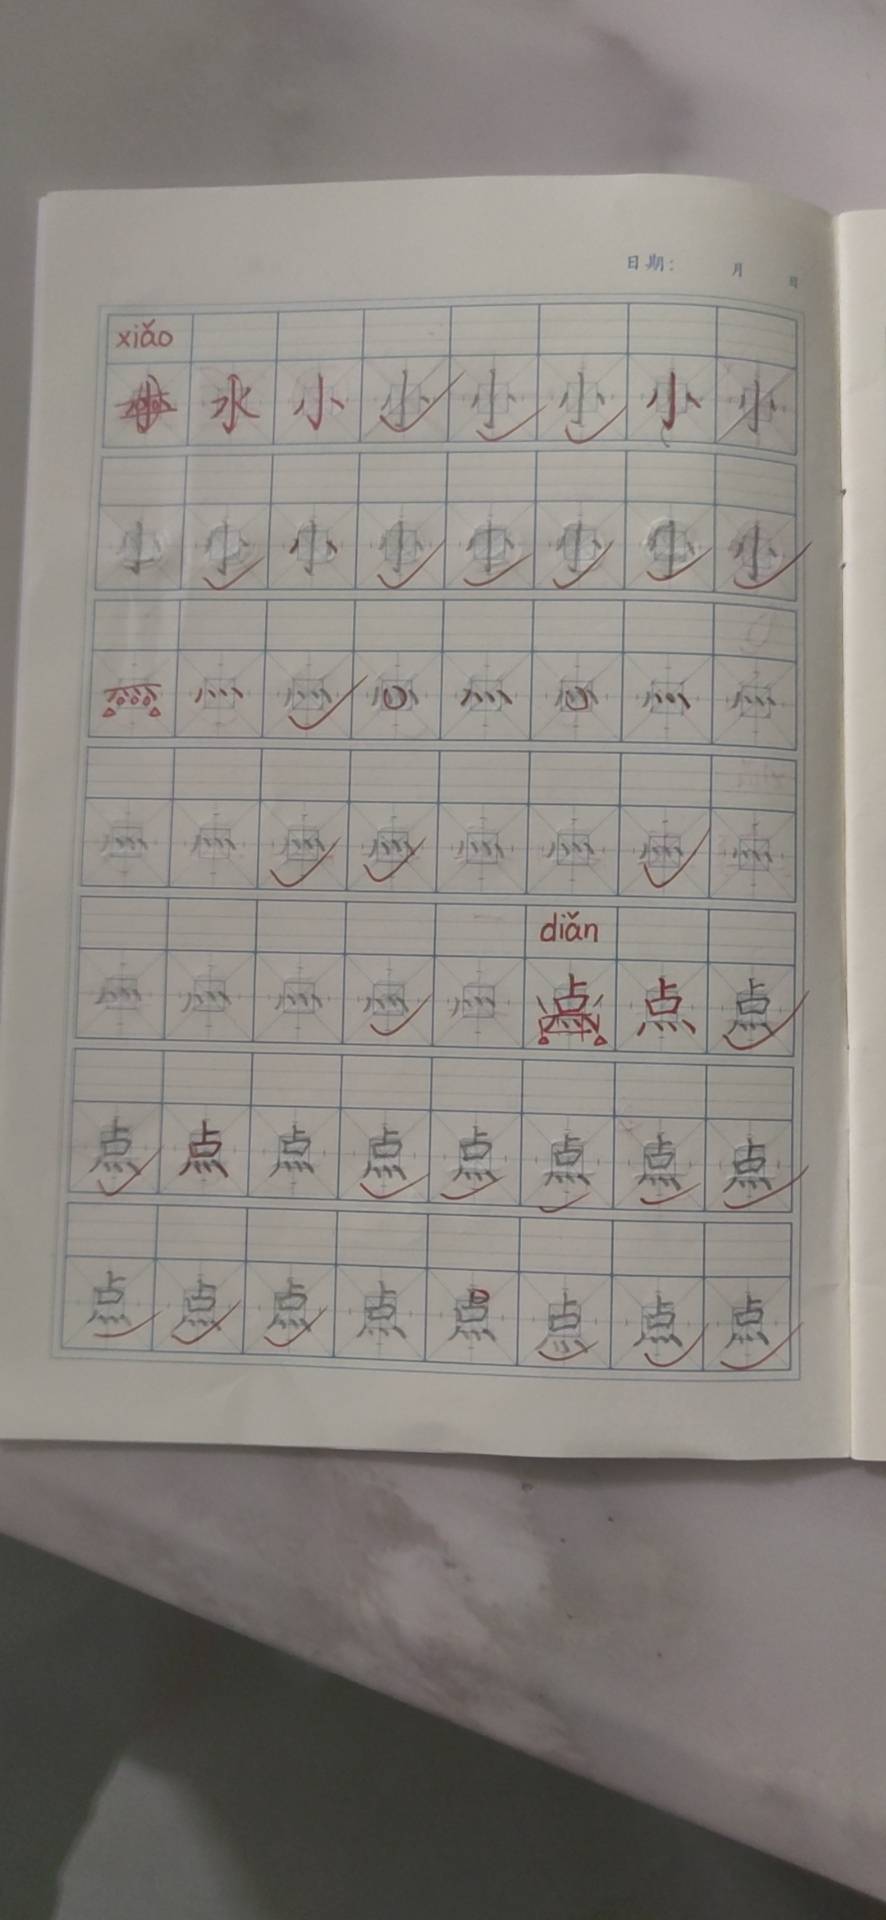 日期： 月 日
xiǎo
小 水 小 小 小 小 小 小
小 小 小 小 小 小 小 小
灬 灬 灬 灬 灬 灬 灬 灬
灬 灬 灬 灬 灬 灬 灬 灬
diǎn
灬 灬 灬 灬 灬 点 点 点
点 点 点 点 点 点 点 点
点 点 点 点 点 点 点 点